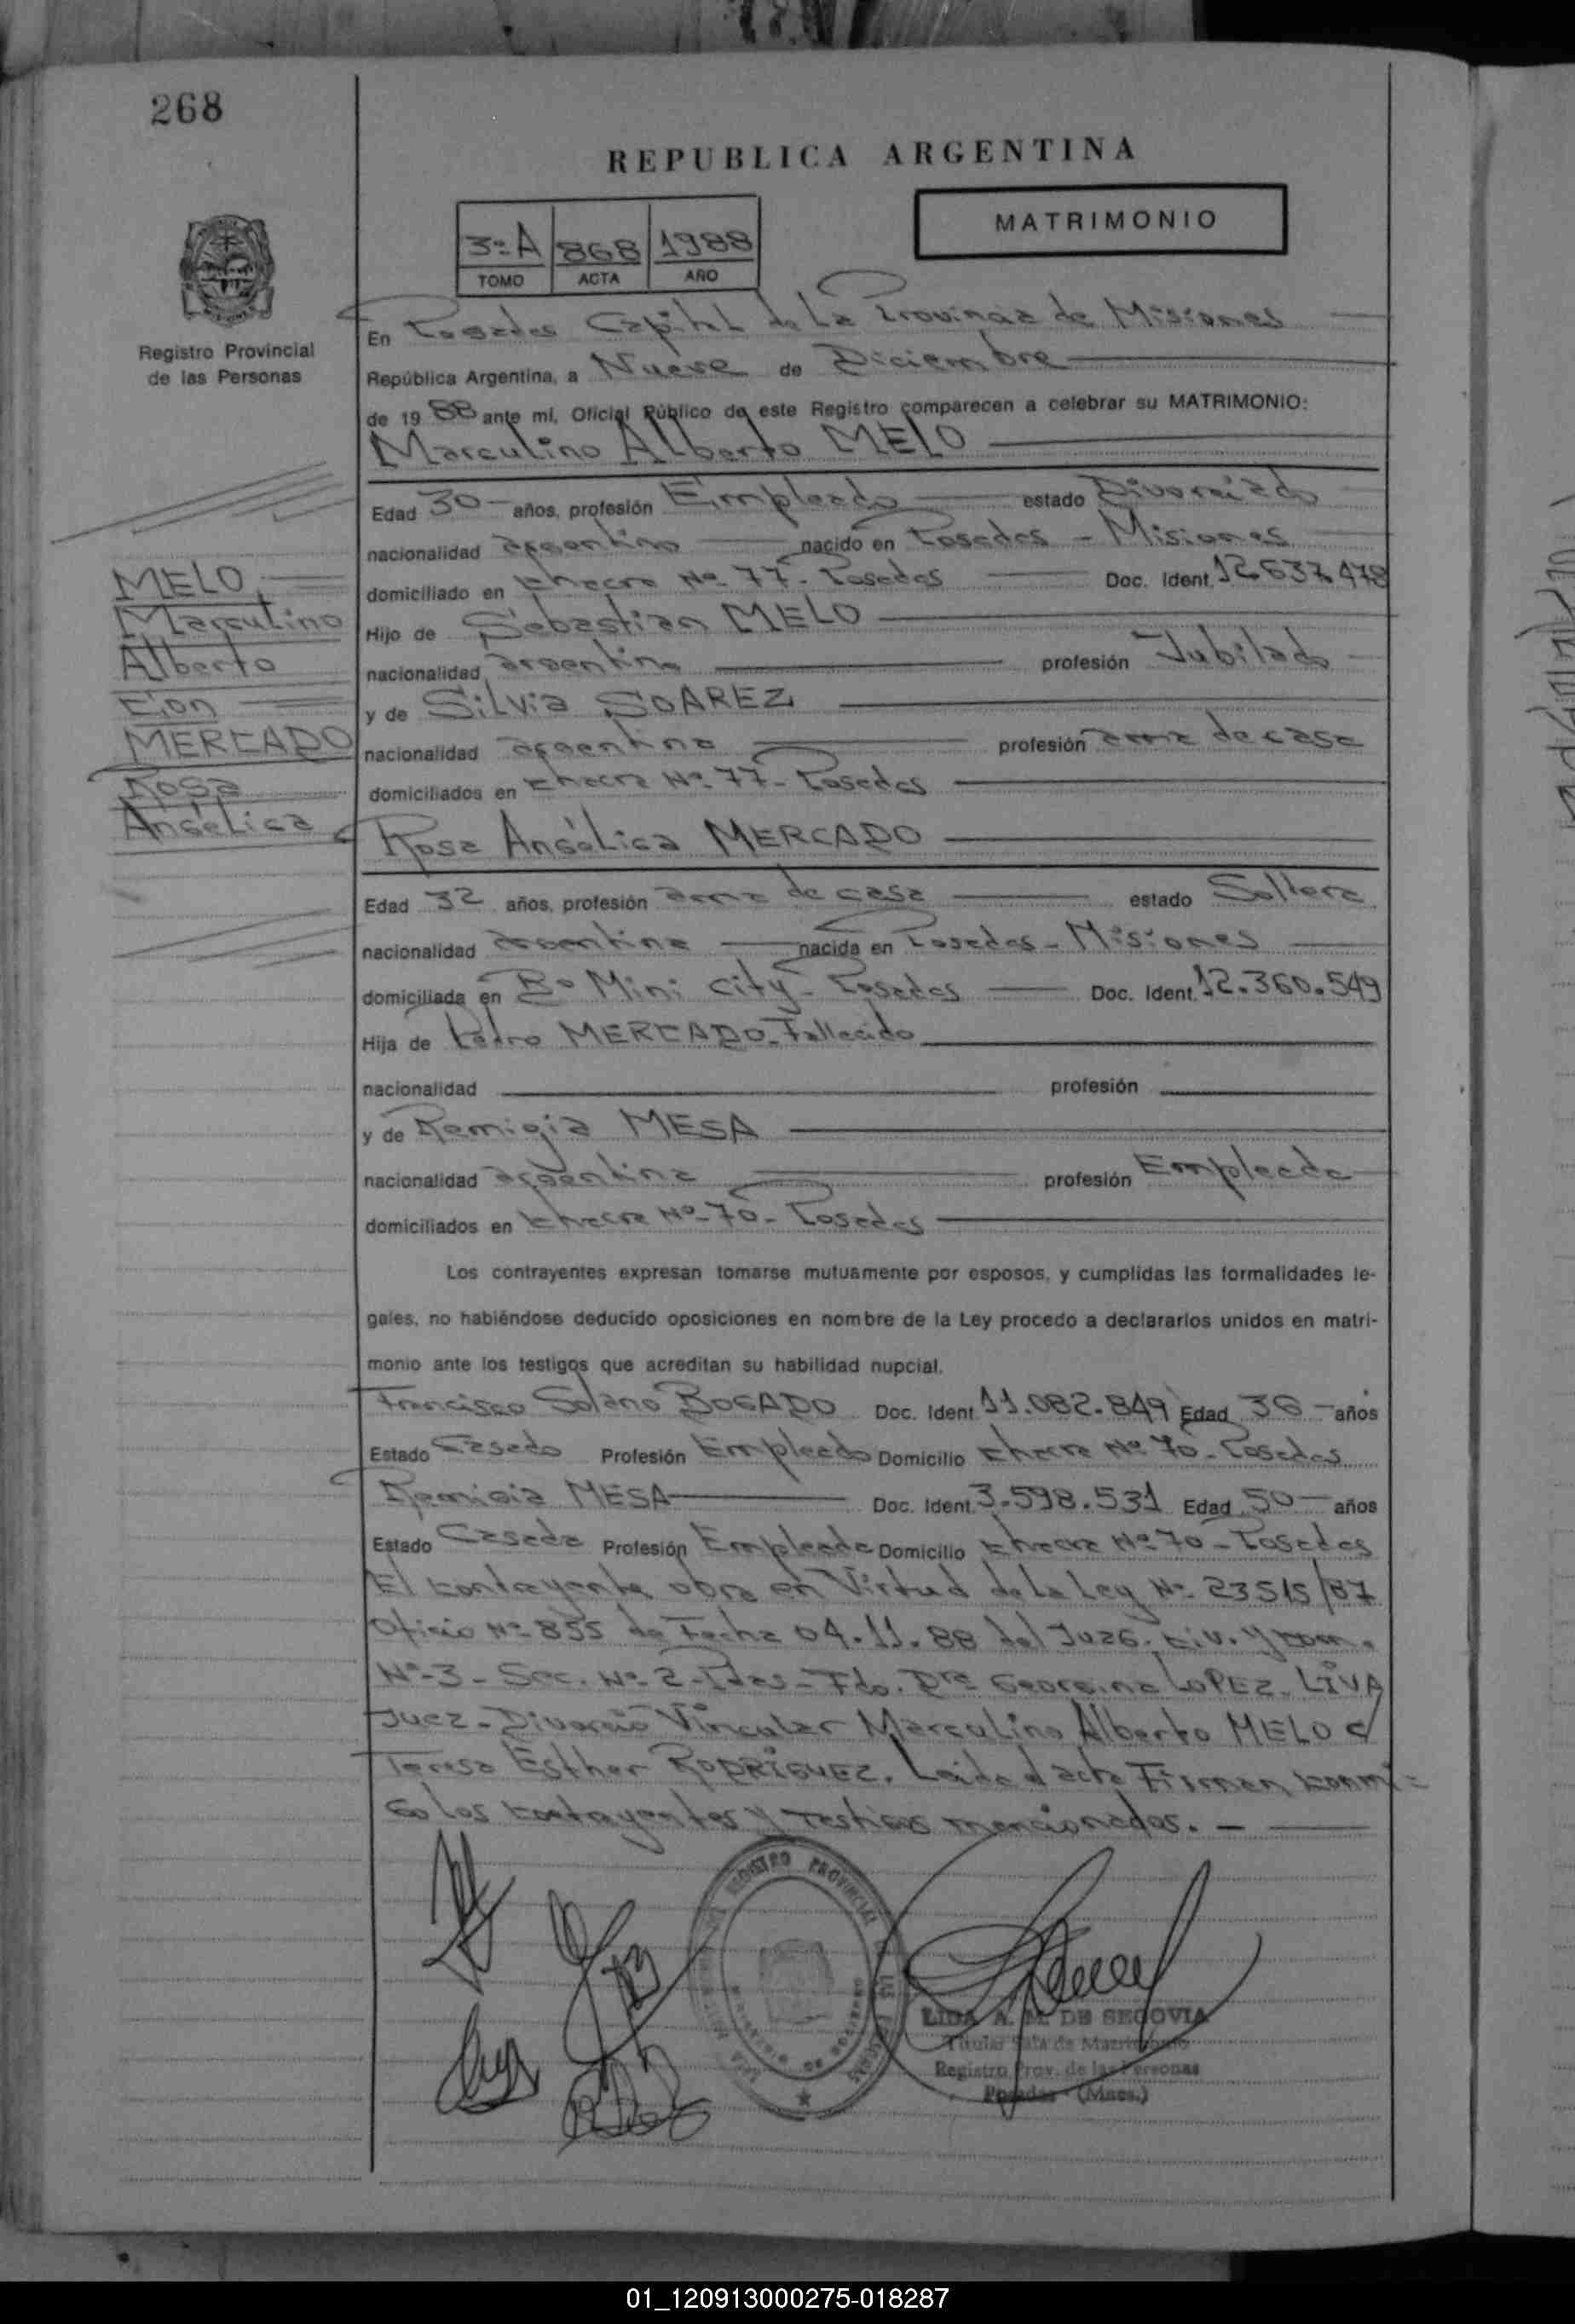 268
REPUBLICA ARGENTINA
MATRIMONIO
3º A 868 1988
TOMO ACTA AÑO
Registro Provincial
de las Personas
En Posadas Capital de la Provincia de Misiones
República Argentina, a Nueve de Diciembre
de 19 88 ante mí, Oficial Público de este Registro comparecen a celebrar su MATRIMONIO:
Marculino Alberto MELO
Edad 30 años, profesión Empleado estado Divorciado
nacionalidad argentino nacido en Posadas - Misiones
domiciliado en Chacra Nº 77 - Posadas Doc. Ident. 12.637.478
Hijo de Sebastian MELO
nacionalidad argentino profesión Jubilado
y de Silvia SOAREZ
nacionalidad argentina profesión ama de casa
domiciliados en Chacra Nº 77 - Posadas
MELO,
Marculino
Alberto
Con
MERCADO
Rosa
Angélica
Rosa Angélica MERCADO
Edad 32 años, profesión ama de casa estado Soltera
nacionalidad argentina nacida en Posadas - Misiones
domiciliada en Bº Mini City - Posadas Doc. Ident. 12.360.549
Hija de Pedro MERCADO - Fallecido
nacionalidad profesión
y de Remigia MESA
nacionalidad argentina profesión Empleada
domiciliados en Chacra Nº 70 - Posadas
Los contrayentes expresan tomarse mutuamente por esposos, y cumplidas las formalidades le-
gales, no habiéndose deducido oposiciones en nombre de la Ley procedo a declararlos unidos en matri-
monio ante los testigos que acreditan su habilidad nupcial.
Francisco Solano BOGADO Doc. Ident 11.082.849 Edad 36 años
Estado Casado Profesión Empleado Domicilio Chacra Nº 70 - Posadas
Remigia MESA Doc. Ident. 3.598.531 Edad 50 años
Estado Casada Profesión Empleada Domicilio Chacra Nº 70 - Posadas
El contrayente obra en Virtud de la Ley Nº 23515/87
Oficio Nº 855 de Fecha 04.11.88 del Juzg. Civ. y Com.
Nº 3 - Sec. Nº 2 - Pdas - Fdo. Dra Georgina LOPEZ LIVA
Juez - Divorcio Vincular Marculino Alberto MELO c/
Teresa Esther RODRIGUEZ. Leida el acta Firman conmi=
go los contrayentes y testigos mencionados. -
REGISTRO PROVINCIAL
LIDA A. M. DE SEGOVIA
Titular Sala de Matrimonio
Registro Prov. de las Personas
Posadas (Mnes.)
01_120913000275-018287